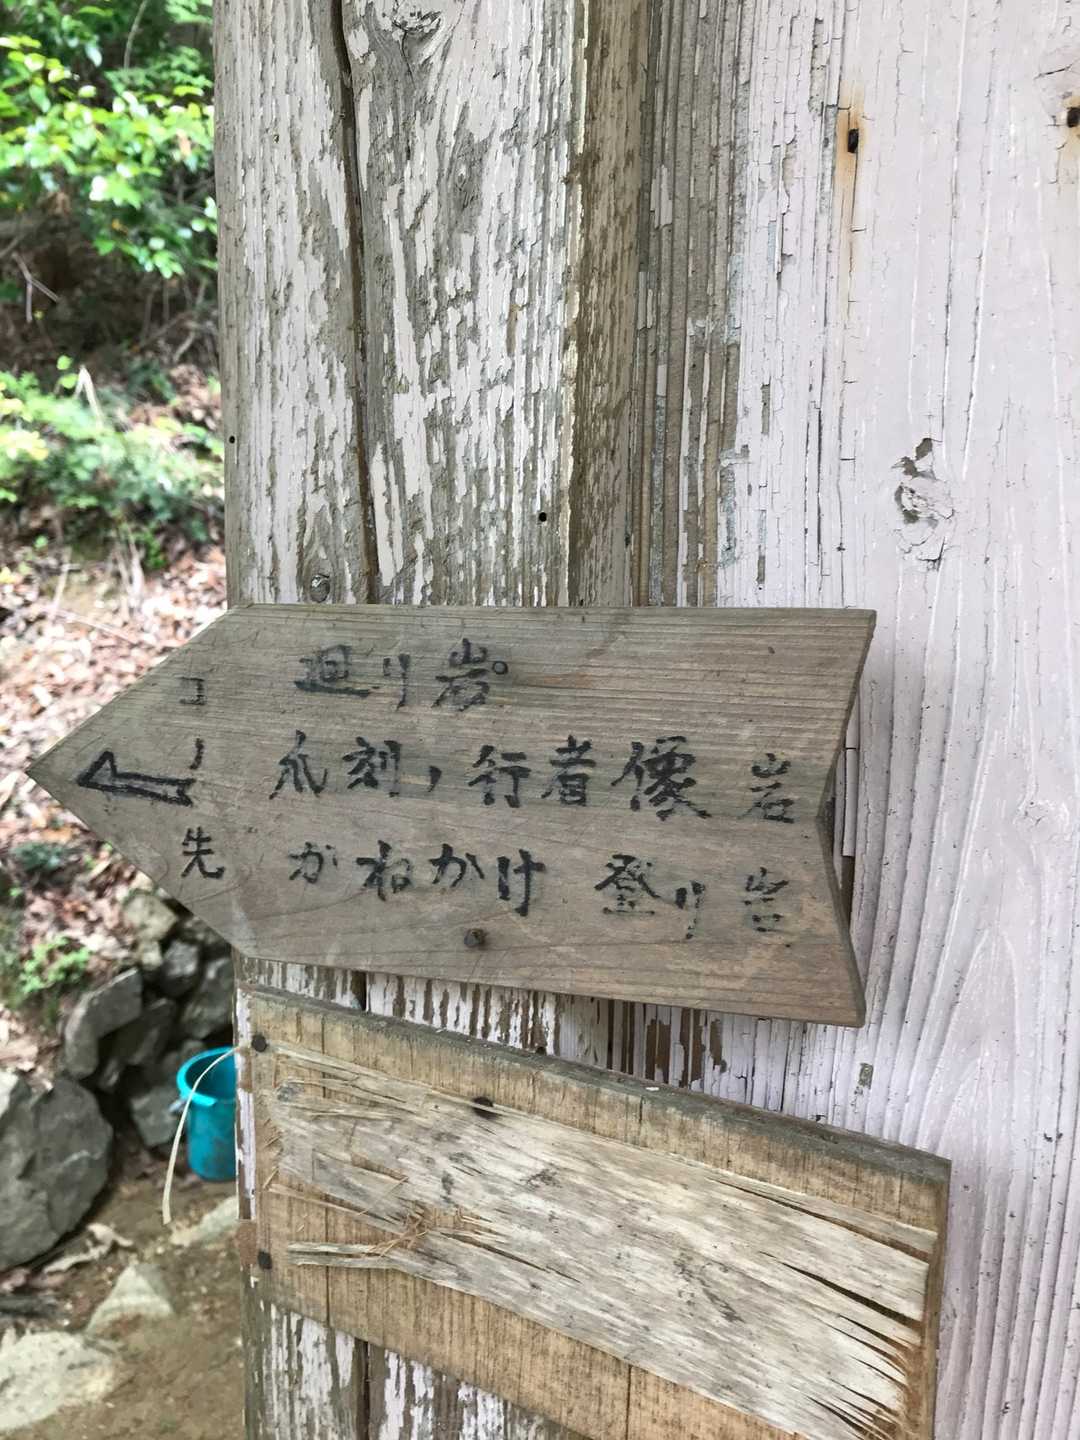 コノ先
廻り岩。
爪刻，行者像 岩
がねかけ 登り岩